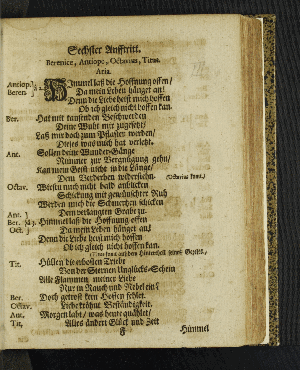 Sechster Aufftritt.
Berenice, Antiope, Octavius, Titus.
Aria.
Antiop. Himmel laß die Hoffnung offen/
Beren. Da mein Leben hänget an!
Denn die Liebe heist mich hoffen
Ob ich gleich nicht hoffen kan.
Ber. Hat mit tausenden Beschwerden
Deine Wuht mir zugesetzt/
Laß mir doch zum Pflaster werden/
Dieses was mich hat verletzt.
Ant. Sollen deine Wunder-Gänge
Nimmer zur Vergnügung gehn/
Kan mein Geist nicht in die Länge/
Dem Verderben widerstehn.
Octav. Wiestu mich nicht bald anblicken
Schickung mit gewünschter Ruh
Werden mich die Schmertzen schicken
Dem verlangten Grabe zu.
Ant.
Ber. Himmel laß die Hoffnung offen
Oct. Da mein Leben hänget an!
Denn die Liebe heist mich hoffen
Ob ich gleich nicht hoffen kan.
Tit. Hüllen die erbosten Triebe
Von der Sternen Unglücks-Schein
Alle Flammen meiner Liebe
Nur in Rauch und Nebel ein?
Ber. Doch getrost kein Hoffen fehlet.
Octav. Liebe kröhnt Beständigkeit.
Ant. Morgen labt/ was heute quählet/
Tit, Alles ändert Glück und Zeit
Himmel